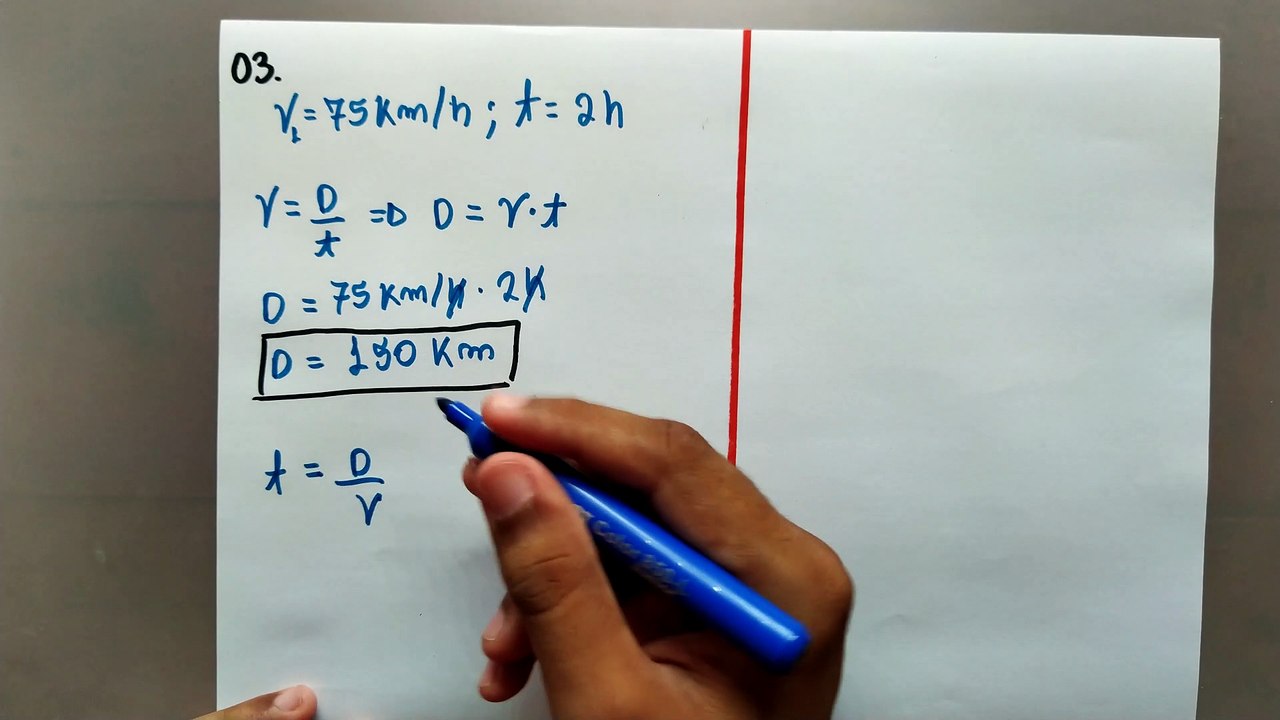 03.
V₁ = 75 Km/h ; t = 2h
V = D/t ⇒ D = V · t
D = 75 Km/h · 2h
D = 150 Km
t = D/V